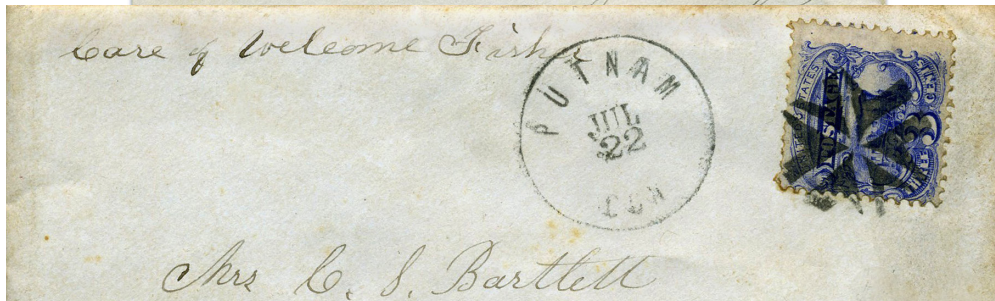 Care of Welcome Fisher
PUTNAM
JUL
22
CON
UNITED STATES
POSTAGE
THREE CENTS
3
Mrs C. S. Bartlett